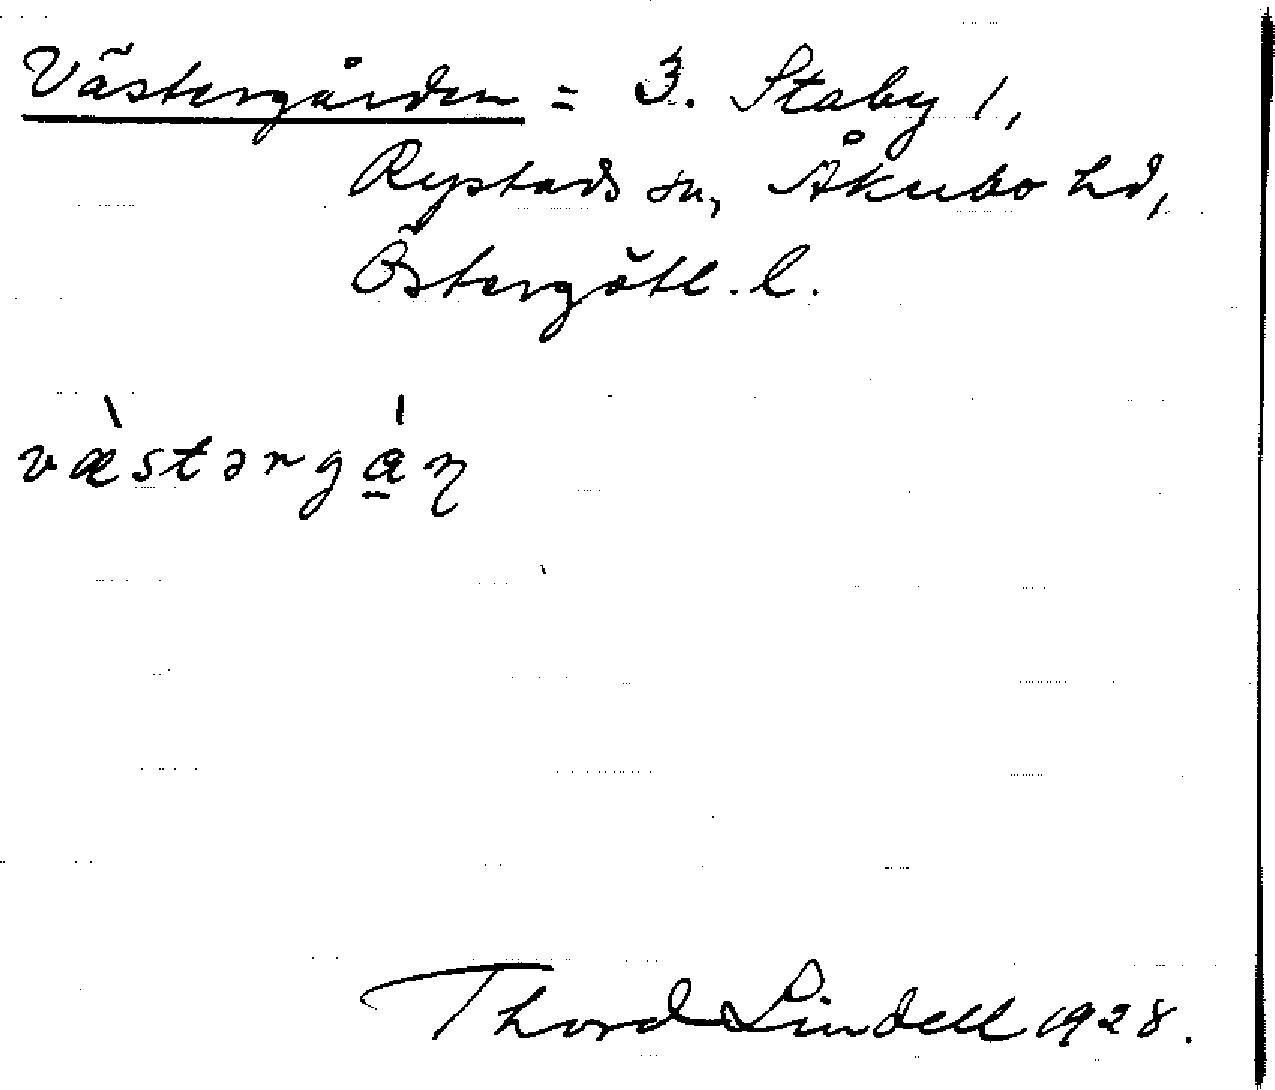 Västergården = 3. Staby 1,
Rystads sn, Åkerbo hd,
Östergötl. l.
væ̀stərgá̱ɳ
Thord Lindell 1928.